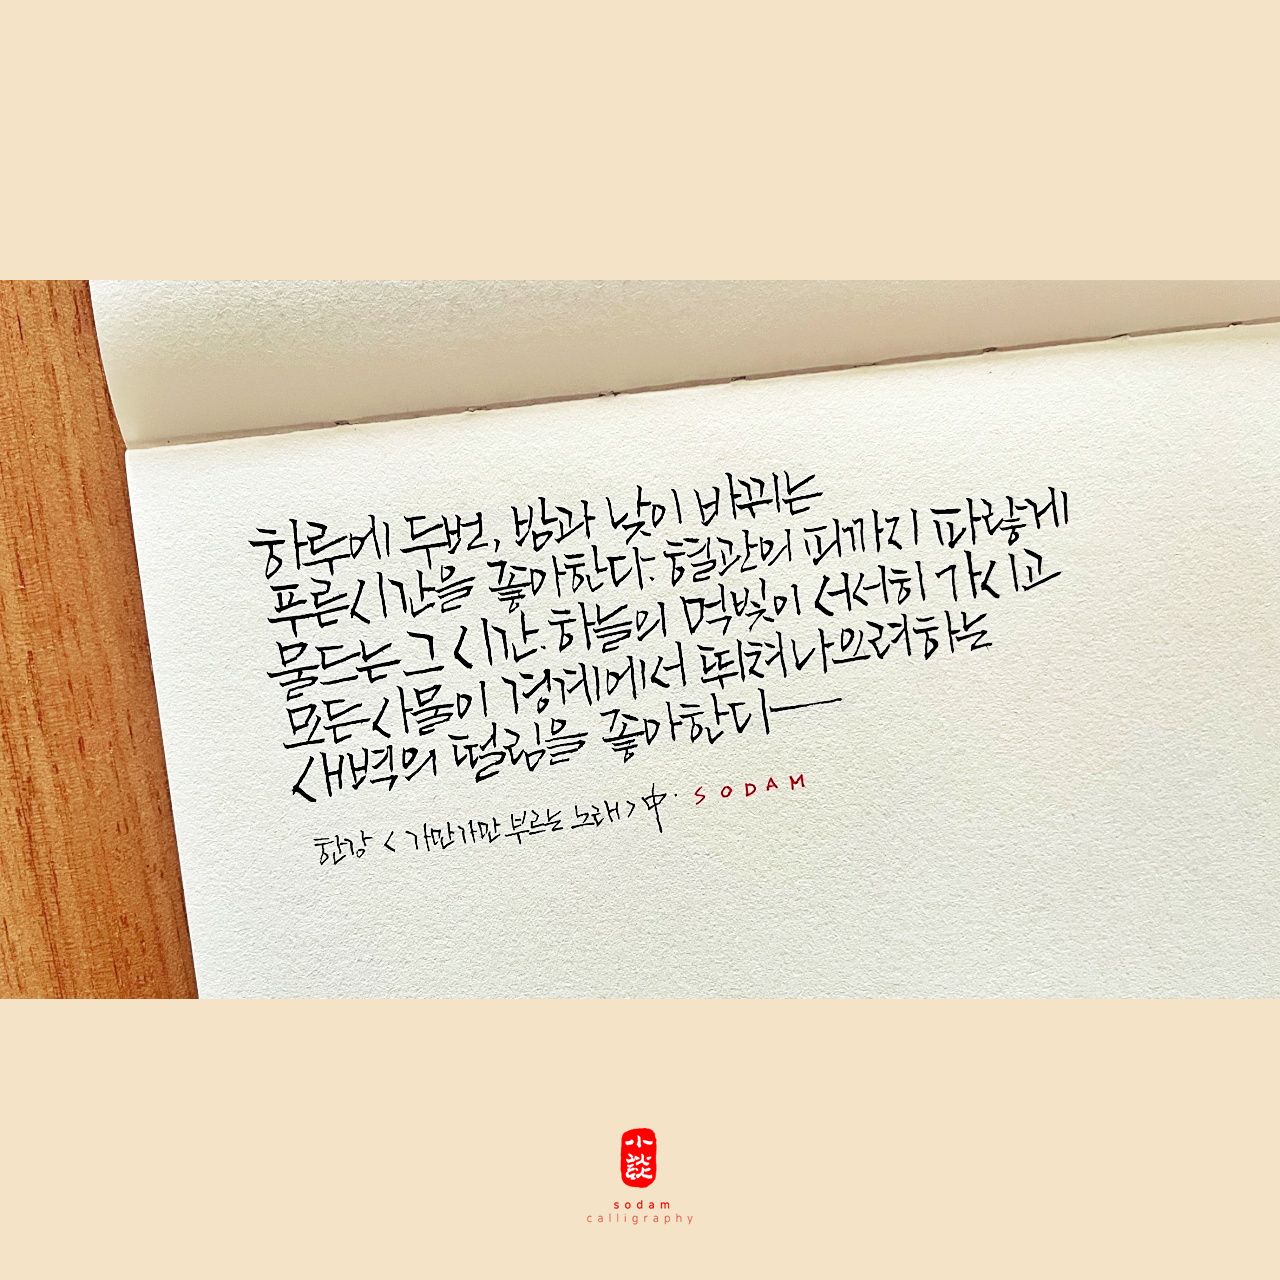 하루에 두번, 밤과 낮이 바뀌는
푸른시간을 좋아한다. 혈관의 피까지 파랗게
물드는 그 시간. 하늘의 먹빛이 서서히 가시고
모든 사물이 경계에서 뛰쳐나으려하는
새벽의 떨림을 좋아한다—
한강 < 가만가만 부르는 노래 > 中. SODAM
小談
sodam
calligraphy